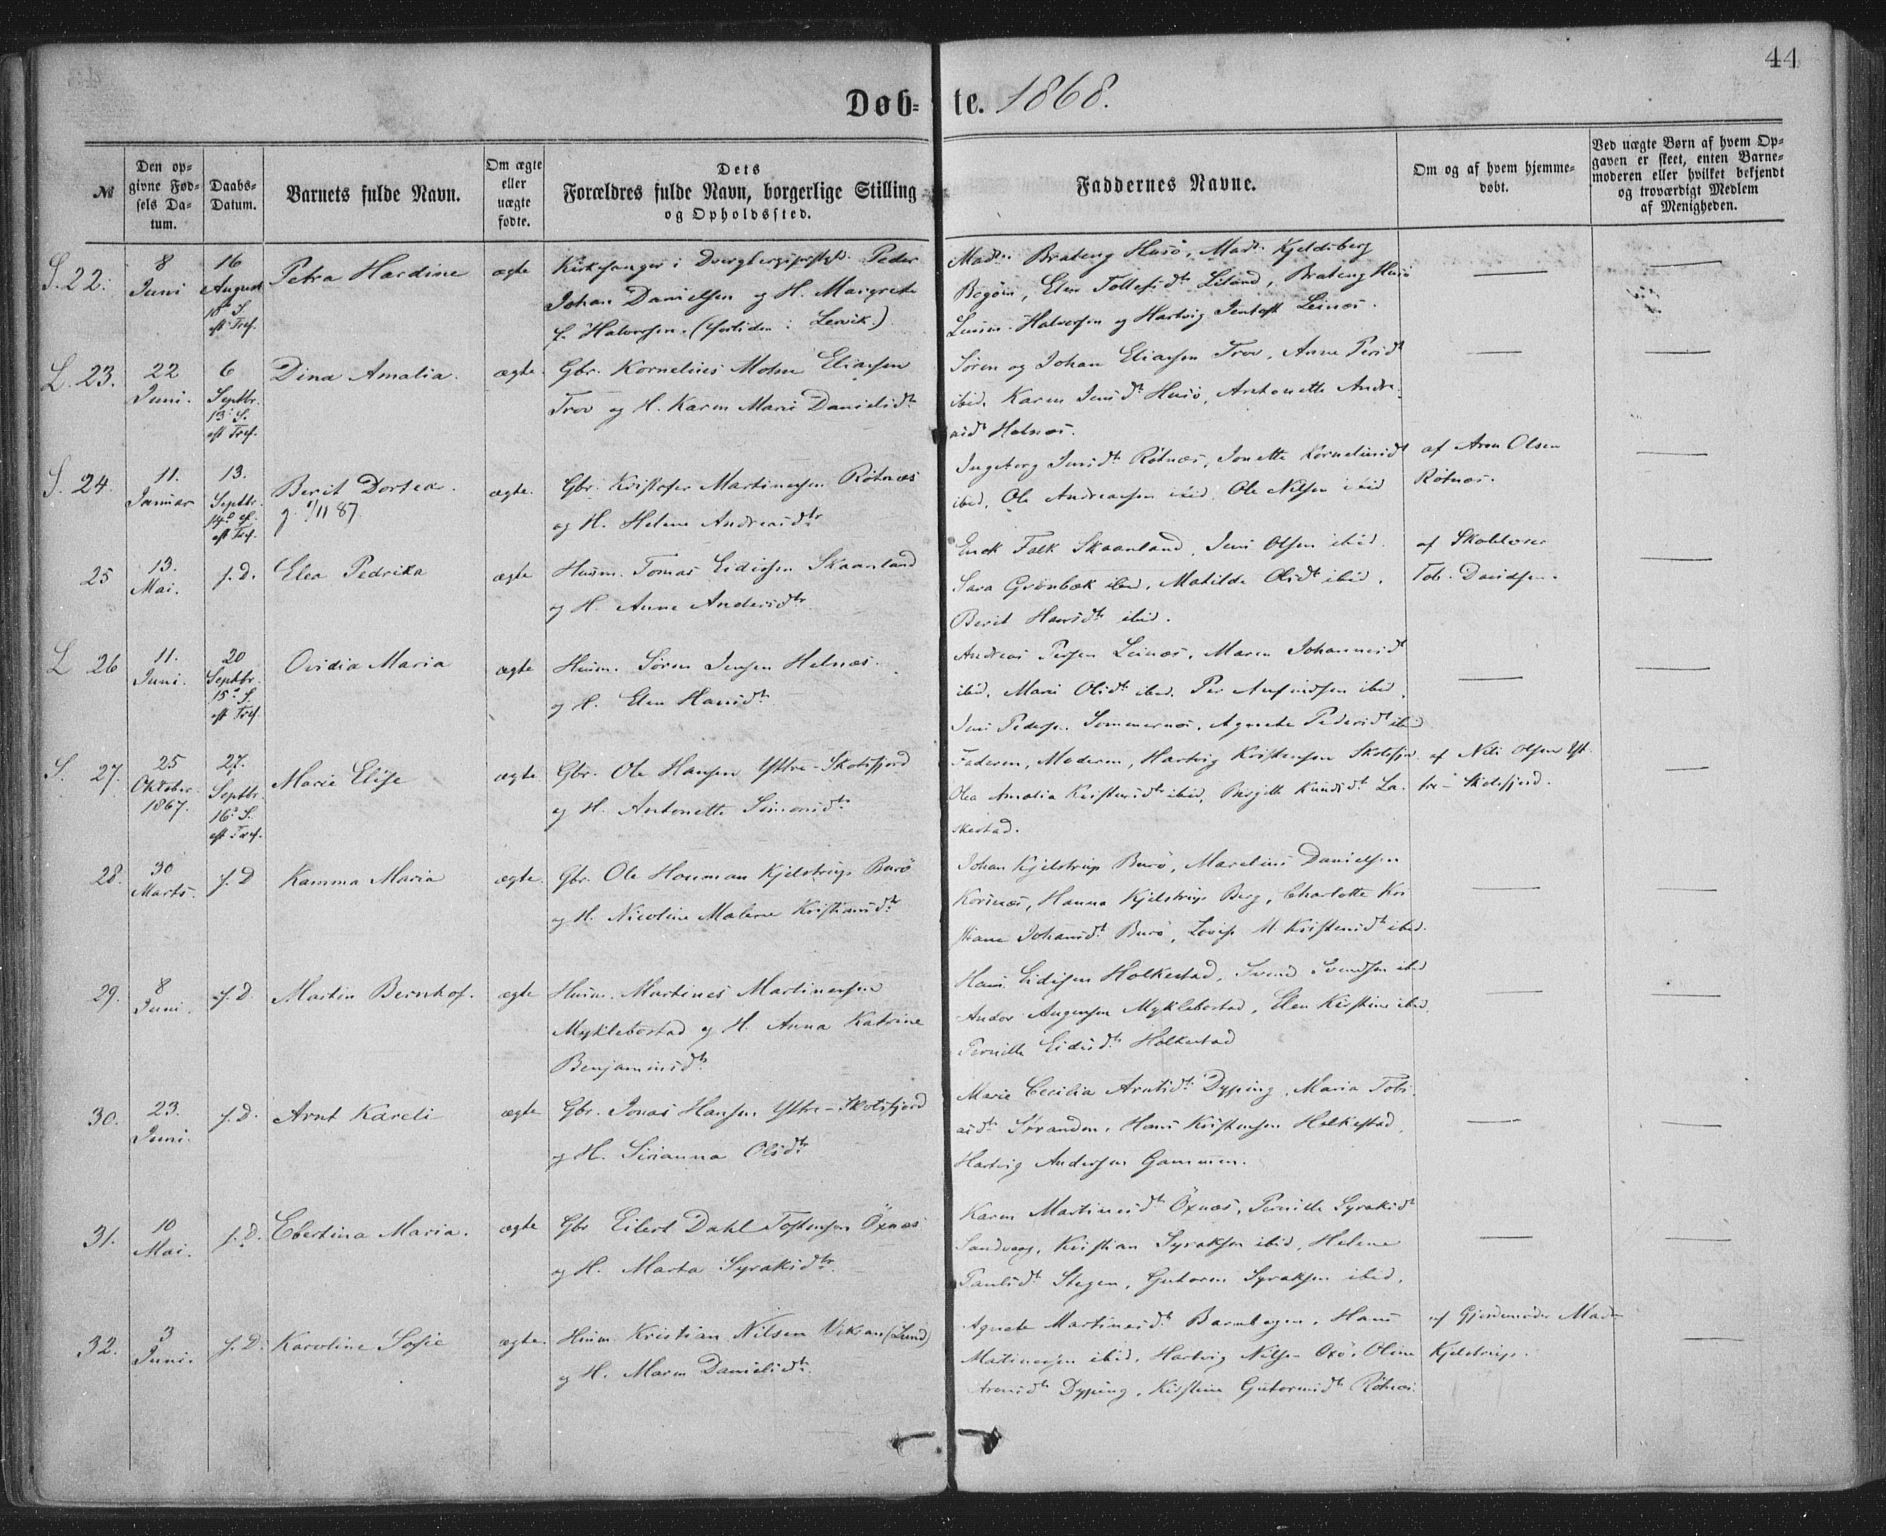 44
Døb- te. 1868.
№
Den op-
givne Fød-
sels Da-
tum.
Daabs-
Datum.
Barnets fulde Navn.
Om ægte
eller
uægte
fødte.
Dets
Forældres fulde Navn, borgerlige Stilling
og Opholdssted.
Faddernes Navne.
Om og af hvem hjemme-
døbt.
Ved uægte Børn af hvem Op-
gaven er skeet, enten Barne-
moderen eller hvilket bekjendt
og troværdigt Medlem
af Menigheden.
S. 22.
8
Juni
16
August
10 S.
eft Tref.
Petra Hardine
ægte
Kirkesanger i Peder
Johan Danielsen og H. Margrete
f. Halvorsen. (fortiden: Lervik)
Mad. Brateng Husö, Mad. Kjeldsberg
Bogöen, Elen Tollefsdtr Lisand, Brateng Husö
Halvorsen og Hartvig Jentoft Leines.
L. 23.
22
Juni.
6
Septbr.
13 S.
eft Tref.
Dina Amalia.
ægte.
Gbr. Kornelius Mohn Eliasen
Trov og H. Karen Marie Danielsdtr.
Sören og Johan Eliasen Trov, Anne Persdt
ibid. Karen Jensdt Husö, Antonette Andre-
asdt Helnæs.
S. 24.
11.
Januar
13.
Septbr.
14 S.
eft Tref.
Berit Dortea.
g. 1/11 87.
ægte.
Gbr. Kristofer Martinussen Rötnæs
og H. Helene Andreasdtr
Ingeborg Jensdt Rötnæs, Jonette Korneliusdt
ibid. Ole Andreassen ibid. Ole Nilsen ibid
af Aron Olsen
Rötnæs.
25
13.
Mai.
s. D.
Elea Pedrikka
ægte
Husm. Tomas Eidissen Skaanland
og H. Anne Andersdtr.
Enok Falk Skaanland, Jens Olsen ibid.
Sara Grönbæk ibid, Matilde Olsdt ibid.
Berit Hansdt ibid.
af Skolelærer
Tob. Davidsen.
L 26
11.
Juni.
20
Septbr.
15 S.
eft Tref.
Ovidia Maria
ægte
Husm. Sören Jensen Helnæs.
og H. Elen Hansdt
Andreas Persen Leinæs, Maren Johannesdt
ibid, Marie Olsdt ibid. Per Aufindsen ibid.
Jens Pedersen Sommernes, Agnete Pedersdt ibid
S. 27.
25
Oktober
1867.
27.
Septbr.
16 S.
eft Tref.
Marie Elise
ægte
Gbr. Ole Hansen Yttre-Skotsfjord
og H. Antonette Simonsdtr
Faderen, Moderen, Hartvig Kristensen Skotsfjor
Olea Amalia Kristensdt ibid, Birgitte Knudsdt La-
skestad.
af Nils Olsen Yt-
tre-Skotsfjord.
28.
30
Marts.
s. D
Kamma Maria
ægte.
Gbr. Ole Houman Kjelstrup Burö
og H. Nicoline Malene Kristiansdt.
Johan Kjelstrup Burö, Marelius Danielsen
Korsnæs, Hanna Kjelstrup Berg, Charlotte Kri
stiane Johansdt Burö, Lovise M. Kristensdt ibid.
29.
8
Juni.
s. D.
Martin Bernhof.
ægte
Husm. Martines Martinussen
Myklebostad og H. Anna Katrine
Benjaminsdt.
Hans Eidissen Holkestad, Svend Svendsen ibid
Andor Augensen Myklebostad, Elen Kirstine ibid.
Pernille Eidisdt Holkestad
30.
23.
Juni.
s. D.
Arnt Kareli
ægte
Gbr. Jonas Hansen Yttre-Skotsfjord
og H. Sirianna Olsdtr
Marie Cecilia Arntsdt Dyping, Maria Tobi-
asdt Stranden, Hans Kristensen Holkestad,
Hartvig Andersen Gammen.
31.
10
Mai.
s. D.
Ebertina Maria.
ægte
Gbr Eilert Dahl Tostensen Öxnæs
og H. Marta Syraksdtr.
Karen Martinusdt Öxnæs, Pernille Syraksdt
Sandvaag, Kristian Syraksen ibid, Helene
Paulsdt Stegen, Gutorm Syraksen ibid.
32.
3
Juni.
s. D.
Karoline Sofie
ægte.
Husm. Kristian Nilsen Viksan (Lund)
og H. Maren Danielsdt.
Agnete Martinusdt Barmhagen, Hans
Matinussen ibid, Hartvig Nilsen Oxö, Oline
Aronsdt Dyping, Kirstine Gutormsdt Rötnæs.
af Gjordemoder Mad
Kjelstrup.